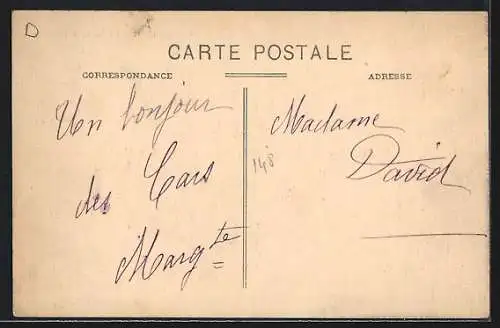 D
CARTE POSTALE
CORRESPONDANCE
ADRESSE
Un bonjour
des Cars
Margte
148
Madame
David